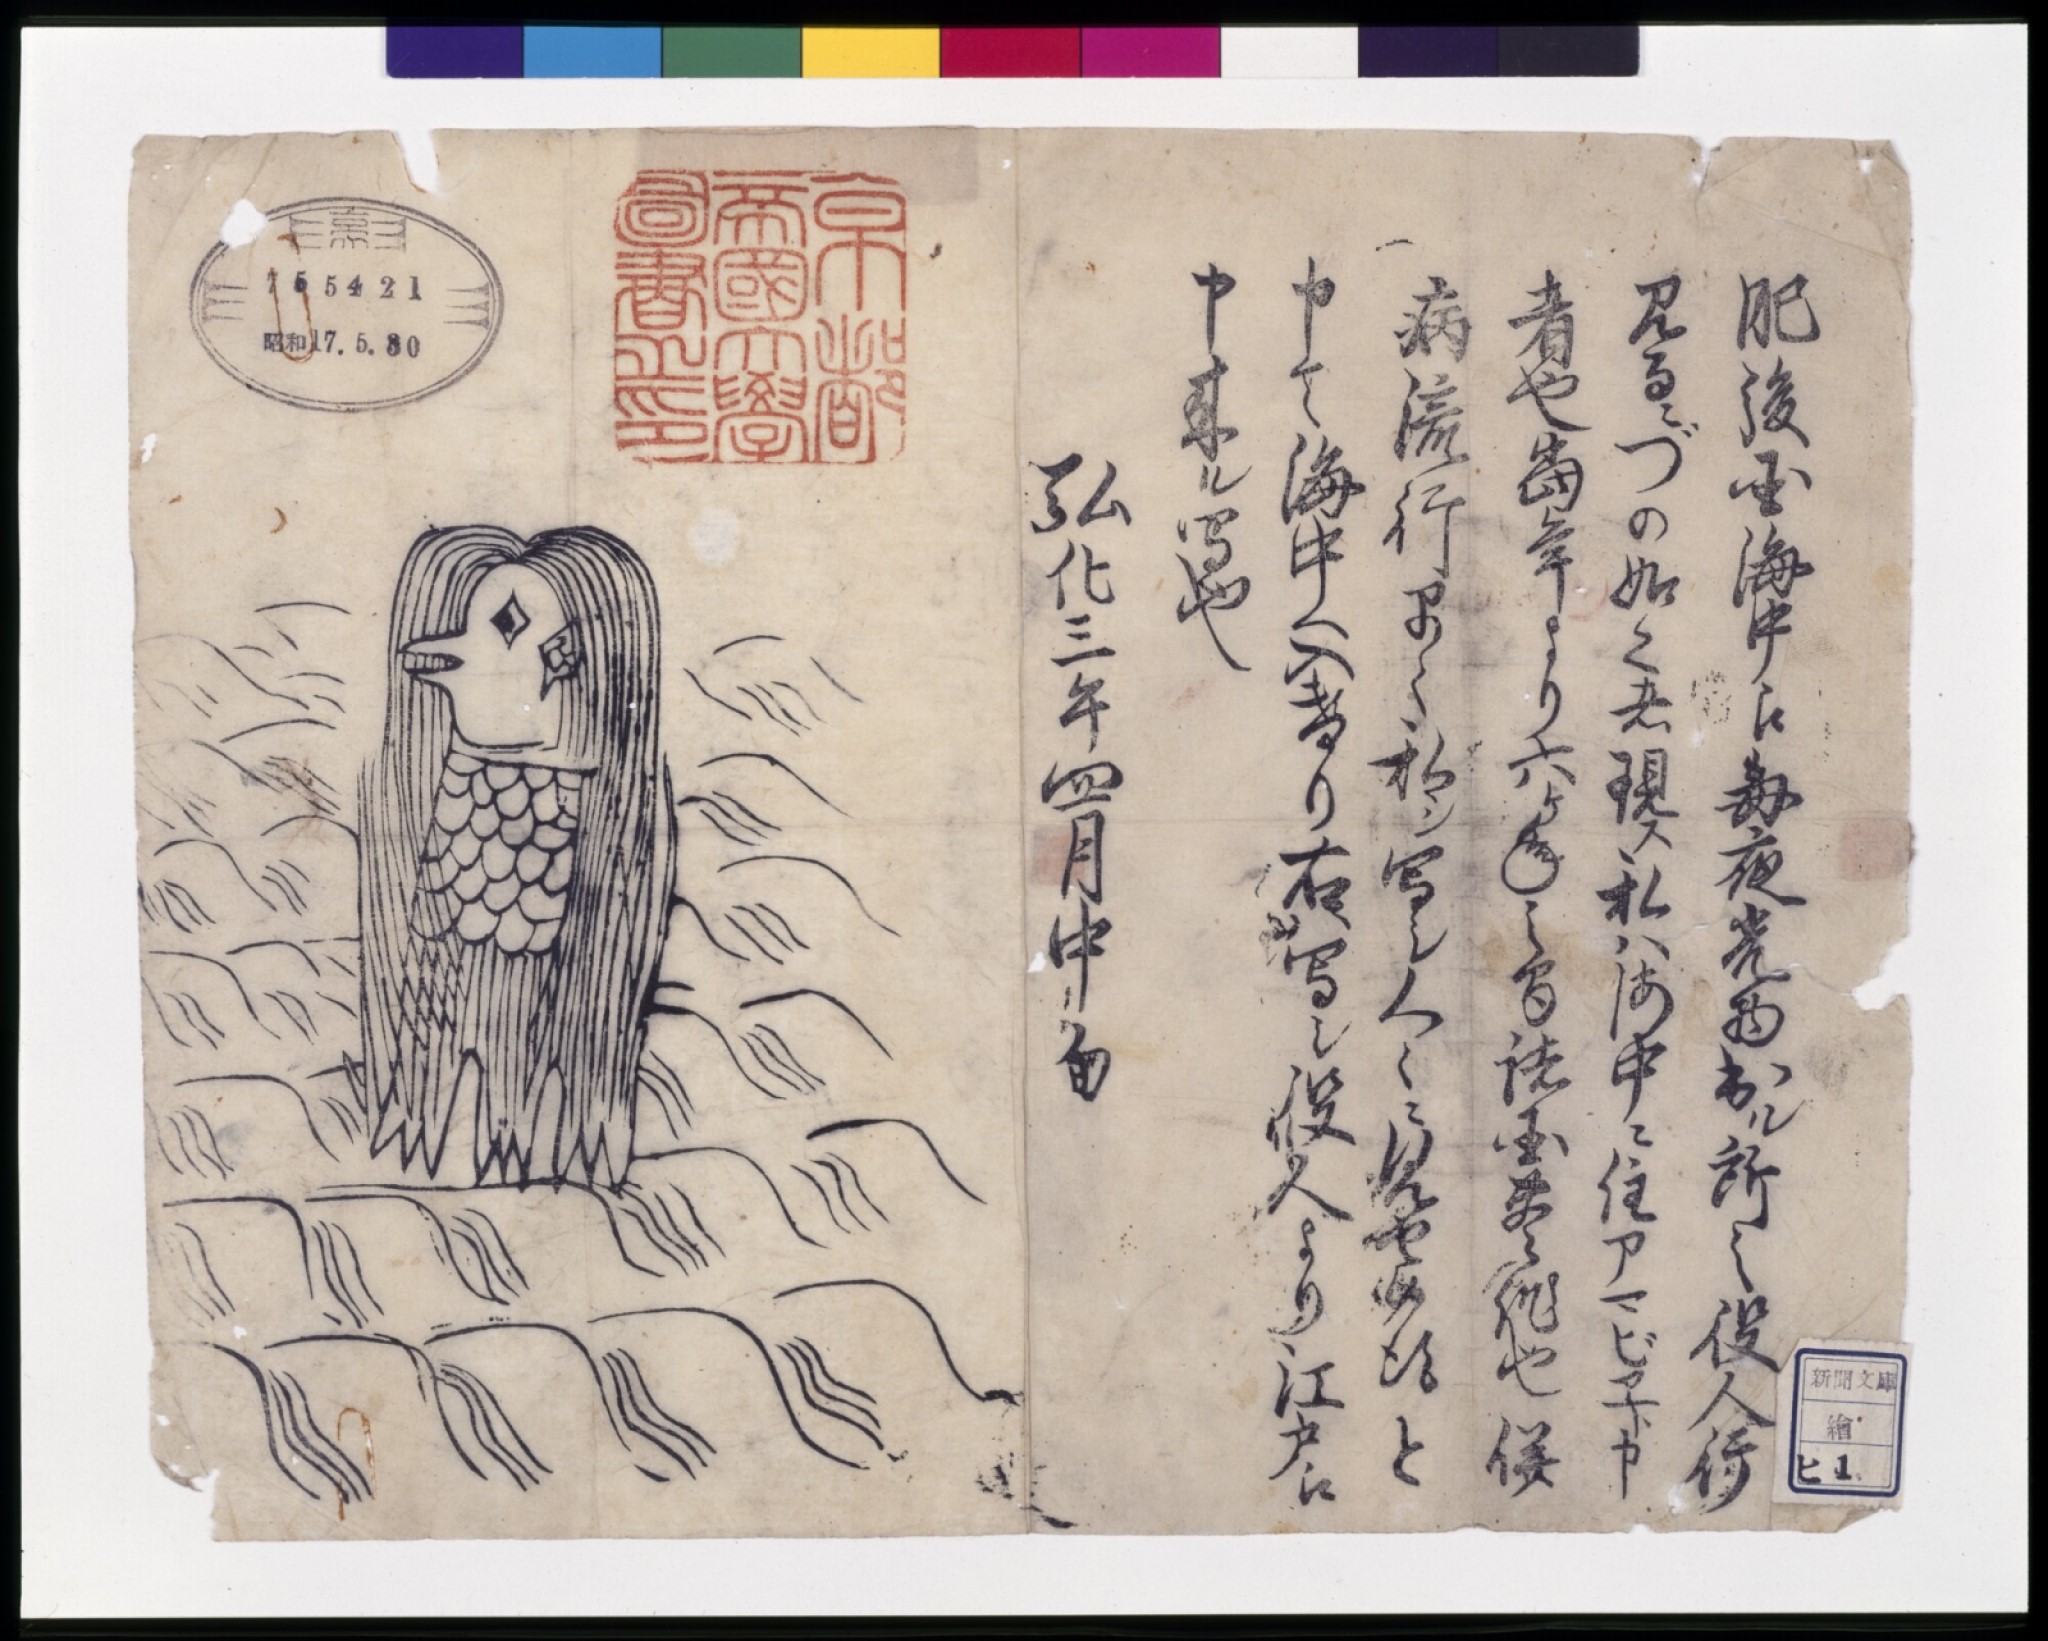 肥後国海中江毎夜光物出ル所之役人行
見るニづの如く者現ス私ハ海中ニ住アマビヱト申
者也當年より六ケ年之間諸国豊作也併
病流行早々私シ写シ人々ニ見セ候得と
申て海中へ入けり右ハ写シ役人より江戸江
申来ル写也
弘化三年四月中旬
京都
帝國大學
圖書之印
京
755421
昭和17.5.30
新聞文庫
繪
ヒ1